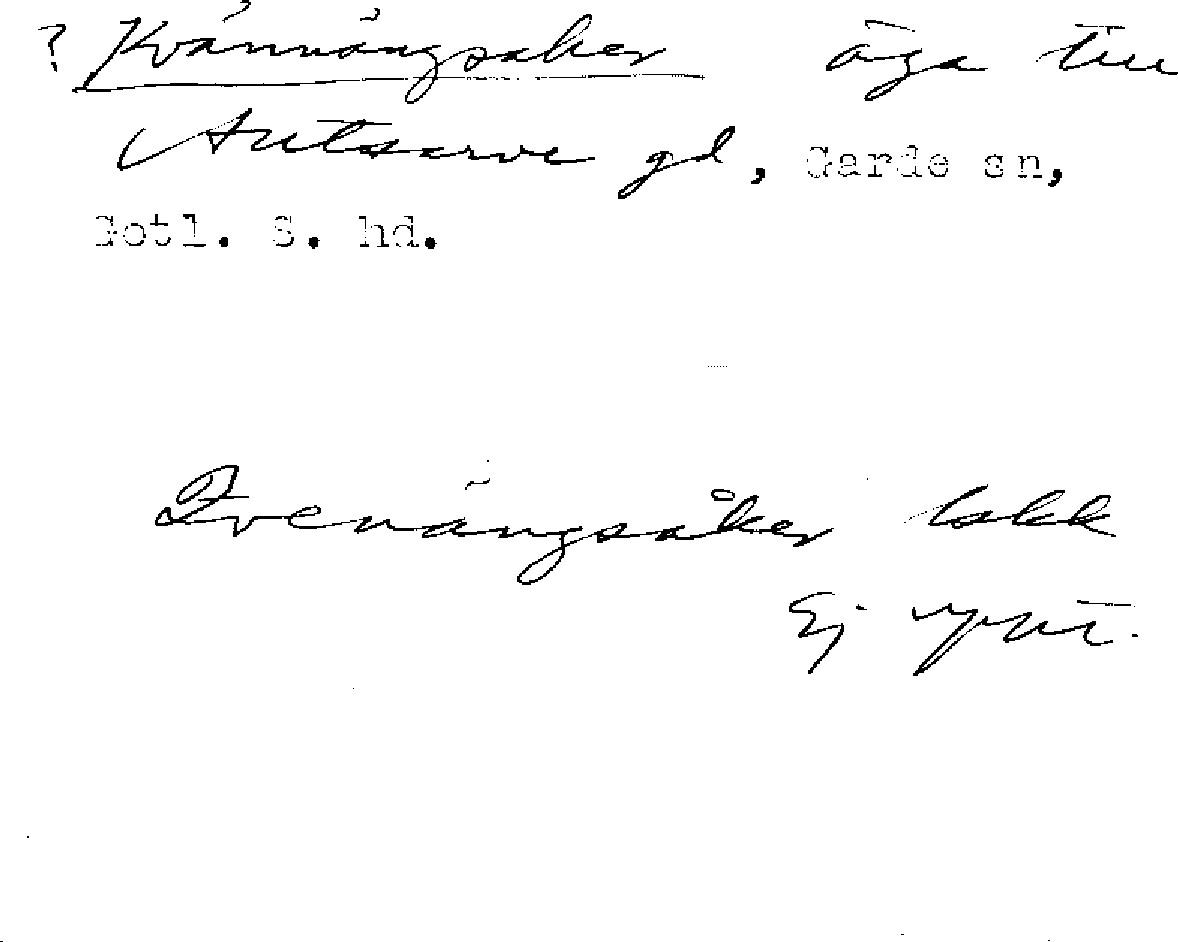 ? Kvännängsaker äga till
Autsarve gd, Garde sn,
Gotl. S. hd.
Qvenängsåker
Ej uppt.